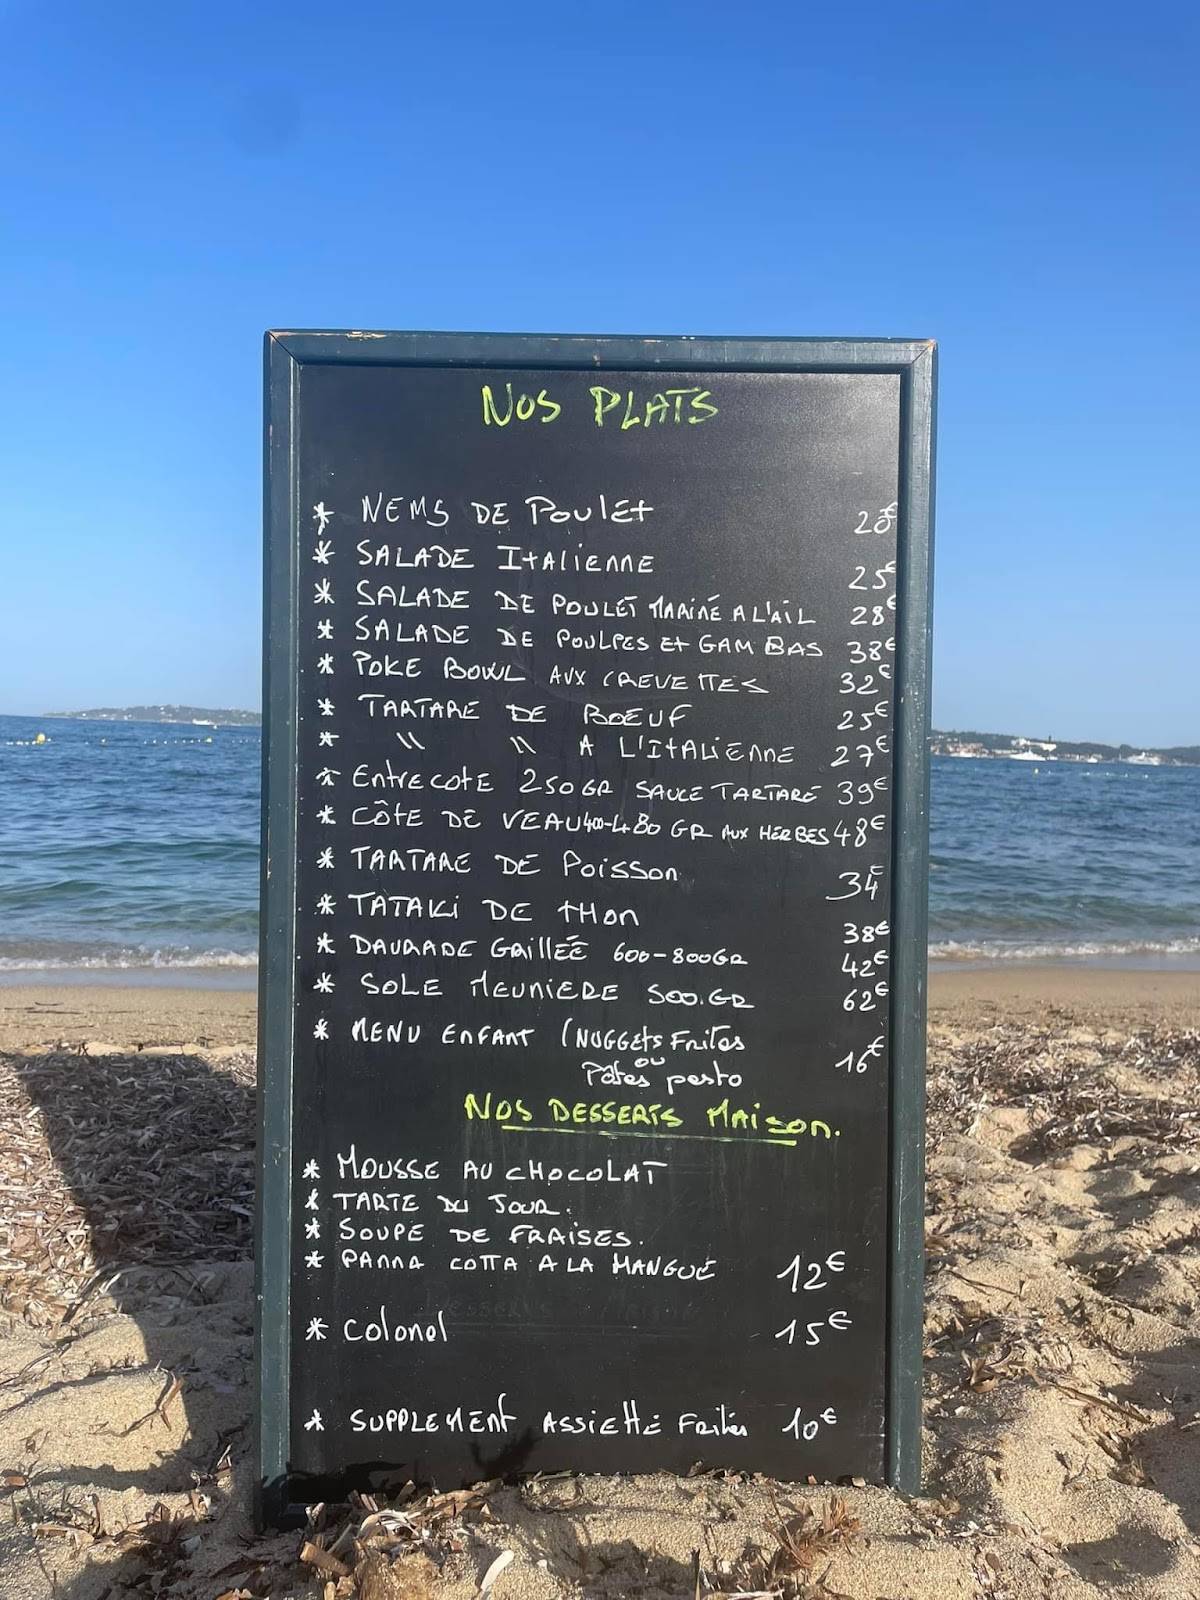 NOS PLATS
* NEMS DE POULET 20€
* SALADE ITALIENNE 25€
* SALADE DE POULET MARINÉ A L'AIL 28€
* SALADE DE POULPES ET GAMBAS 38€
* POKE BOWL AUX CREVETTES 32€
* TARTARE DE BOEUF 25€
* \\ \\ A L'ITALIENNE 27€
* ENTRECOTE 250GR SAUCE TARTARE 39€
* CÔTE DE VEAU 400-480 GR AUX HERBES 48€
* TARTARE DE POISSON 34€
* TATAKI DE THON 38€
* DAURADE GRILLÉE 600-800GR 42€
* SOLE MEUNIERE 500.GR 62€
* MENU ENFANT (NUGGETS FRITES 16€
ou
Pâtes pesto
NOS DESSERTS MAISON.
* MOUSSE AU CHOCOLAT
* TARTE DU JOUR.
* SOUPE DE FRAISES.
* PANNA COTTA A LA MANGUE 12€
* COLONEL 15€
* SUPPLEMENT ASSIETTE FRITES 10€